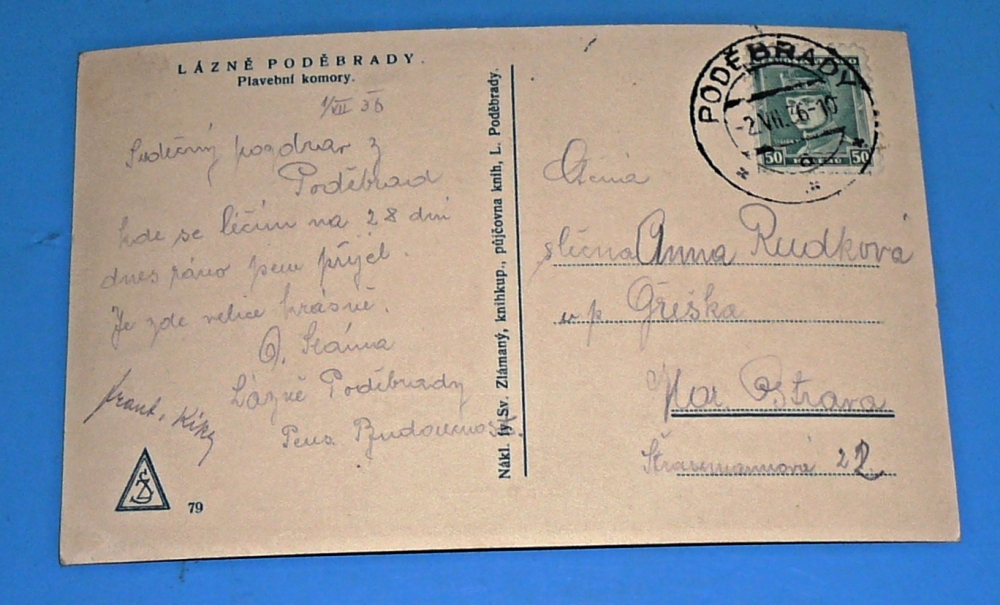 LÁZNĚ PODĚBRADY.
Plavební komory.
1/VII 36
Srdečný pozdrav z
Poděbrad
kde se léčím na 28 dní
dnes ráno jsem přijel.
Je zde velice krásně.
Sláma
Lázně Poděbrady
Pens Budoucnost
Frant.
79
Nákl. fy Sv. Zlámaný, knihkup., půjčovna knih, L. Poděbrady.
PODĚBRADY
-2.VII.36-10
50 50
Ctěná
slečna Anna Rudková
u p Gřeška
Mor. Ostrava
22